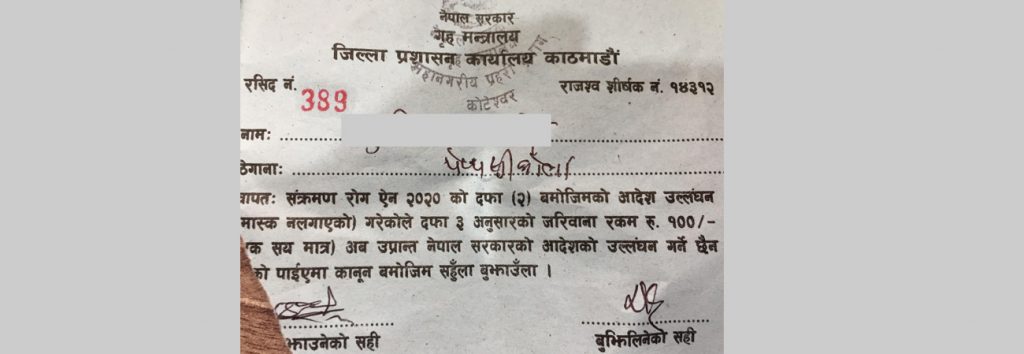 नेपाल सरकार
गृह मन्त्रालय
जिल्ला प्रशासन कार्यालय काठमाडौं
महानगरीय प्रहरी
कोटेश्वर
रसिद नं. 389
राजश्व शीर्षक नं. १४३१२
नामः
ठेगानाः पेप्सीकोला
वापतः संक्रमण रोग ऐन २०२० को दफा (२) बमोजिमको आदेश उल्लंघन
मास्क नलगाएको) गरेकोले दफा ३ अनुसारको जरिवाना रकम रु. १००/-
क सय मात्र) अब उप्रान्त नेपाल सरकारको आदेशको उल्लंघन गर्ने छैन
को पाईएमा कानून बमोजिम सहुँला बुझाउँला ।
झाउनेको सही
बुझिलिनेको सही